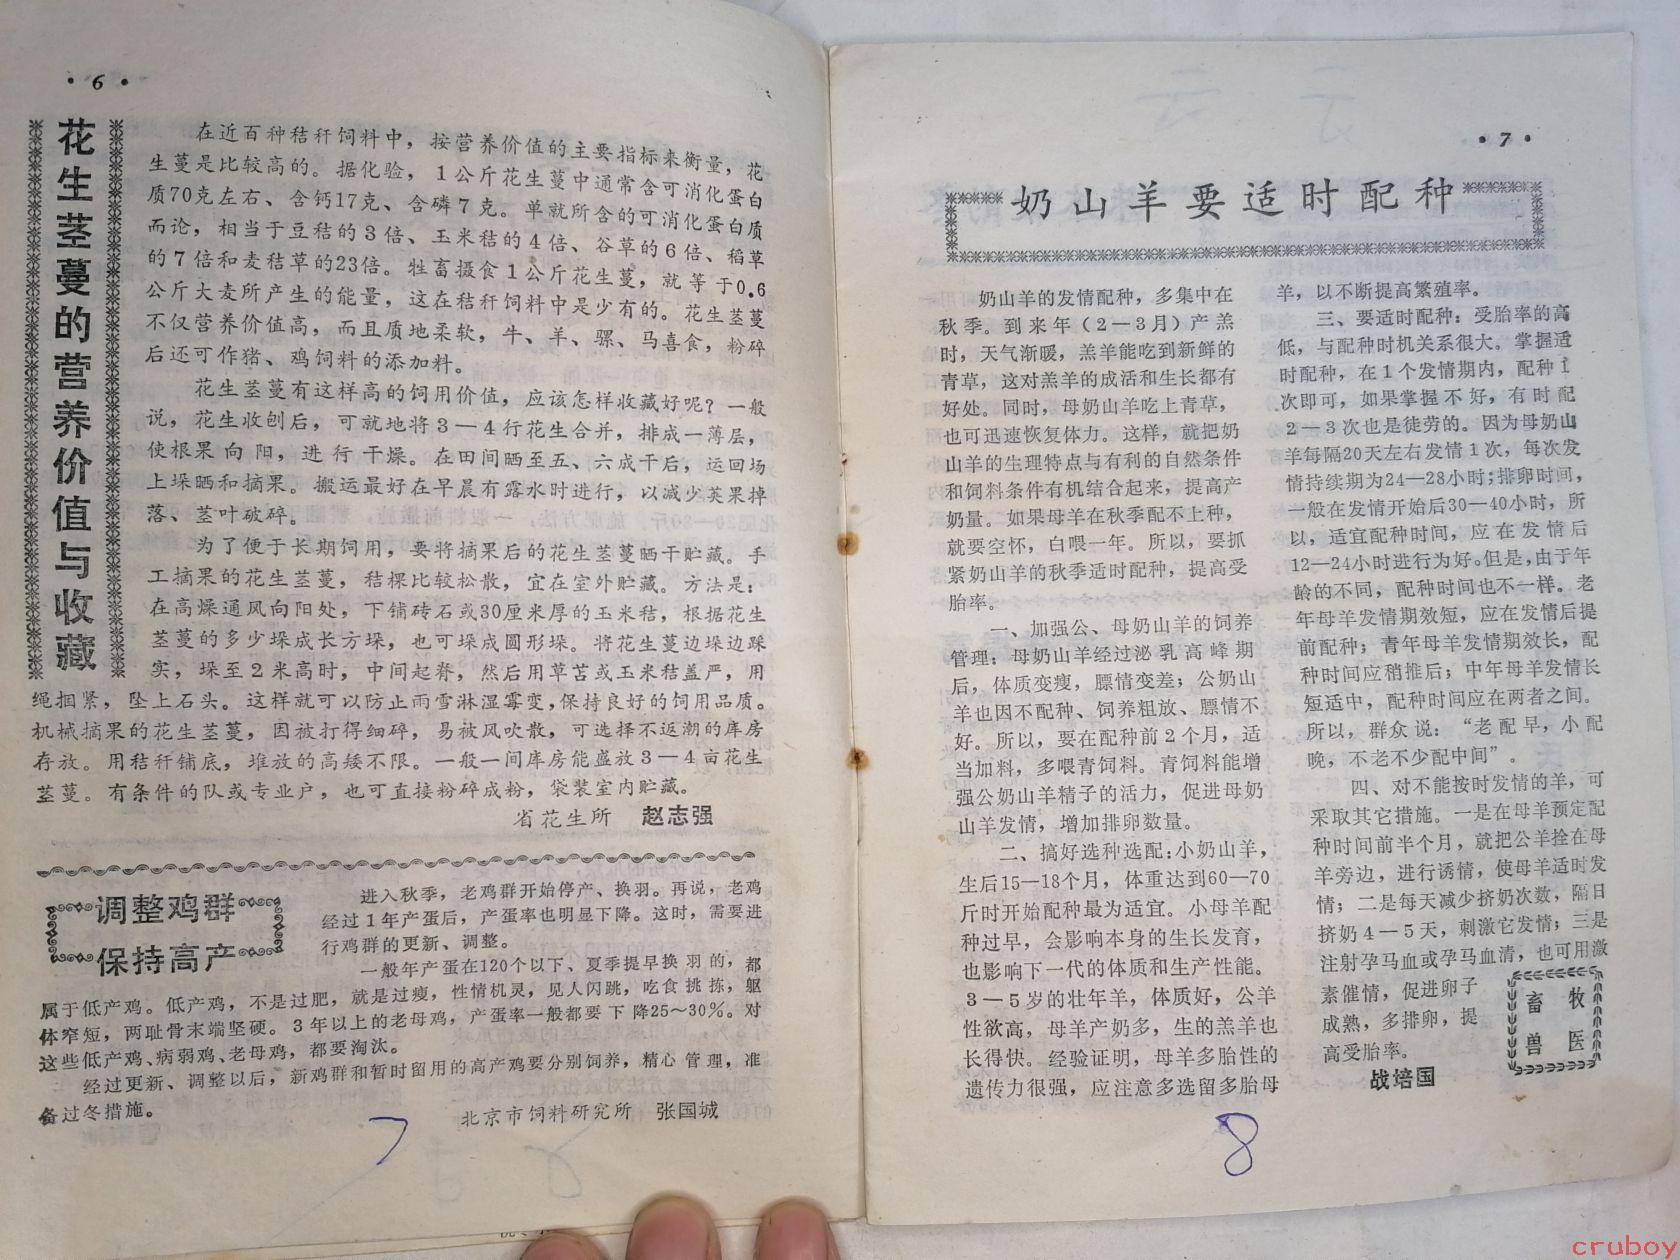 • 6 •
花生茎蔓的营养价值与收藏
在近百种秸秆饲料中，按营养价值的主要指标来衡量，花
生蔓是比较高的。据化验，1公斤花生蔓中通常含可消化蛋白
质70克左右、含钙17克、含磷7克。单就所含的可消化蛋白质
而论，相当于豆秸的3倍、玉米秸的4倍、谷草的6倍、稻草
的7倍和麦秸草的23倍。牲畜摄食1公斤花生蔓，就等于0.6
公斤大麦所产生的能量，这在秸秆饲料中是少有的。花生茎蔓
不仅营养价值高，而且质地柔软，牛、羊、骡、马喜食，粉碎
后还可作猪、鸡饲料的添加料。
花生茎蔓有这样高的饲用价值，应该怎样收藏好呢？一般
说，花生收刨后，可就地将3—4行花生合并，排成一薄层，
使根果向阳，进行干燥。在田间晒至五、六成干后，运回场
上垛晒和摘果。搬运最好在早晨有露水时进行，以减少荚果掉
落、茎叶破碎。
为了便于长期饲用，要将摘果后的花生茎蔓晒干贮藏。手
工摘果的花生茎蔓，秸棵比较松散，宜在室外贮藏。方法是：
在高燥通风向阳处，下铺砖石或30厘米厚的玉米秸，根据花生
茎蔓的多少垛成长方垛，也可垛成圆形垛。将花生蔓边垛边踩
实，垛至2米高时，中间起脊，然后用草苫或玉米秸盖严，用
绳捆紧，坠上石头。这样就可以防止雨雪淋湿霉变，保持良好的饲用品质。
机械摘果的花生茎蔓，因被打得细碎，易被风吹散，可选择不返潮的库房
存放。用秸秆铺底，堆放的高矮不限。一般一间库房能盛放3—4亩花生
茎蔓。有条件的队或专业户，也可直接粉碎成粉，袋装室内贮藏。
省花生所 赵志强
调整鸡群
保持高产
进入秋季，老鸡群开始停产、换羽。再说，老鸡
经过1年产蛋后，产蛋率也明显下降。这时，需要进
行鸡群的更新、调整。
一般年产蛋在120个以下、夏季提早换羽的，都
属于低产鸡。低产鸡，不是过肥，就是过瘦，性情机灵，见人闪跳，吃食挑拣，躯
体窄短，两耻骨末端坚硬。3年以上的老母鸡，产蛋率一般都要下降25～30%。对
这些低产鸡、病弱鸡、老母鸡，都要淘汰。
经过更新、调整以后，新鸡群和暂时留用的高产鸡要分别饲养，精心管理，准
备过冬措施。
北京市饲料研究所 张国城
7
• 7 •
奶山羊要适时配种
奶山羊的发情配种，多集中在
秋季。到来年（2—3月）产羔
时，天气渐暖，羔羊能吃到新鲜的
青草，这对羔羊的成活和生长都有
好处。同时，母奶山羊吃上青草，
也可迅速恢复体力。这样，就把奶
山羊的生理特点与有利的自然条件
和饲料条件有机结合起来，提高产
奶量。如果母羊在秋季配不上种，
就要空怀，白喂一年。所以，要抓
紧奶山羊的秋季适时配种，提高受
胎率。
一、加强公、母奶山羊的饲养
管理：母奶山羊经过泌乳高峰期
后，体质变瘦，膘情变差；公奶山
羊也因不配种、饲养粗放、膘情不
好。所以，要在配种前2个月，适
当加料，多喂青饲料。青饲料能增
强公奶山羊精子的活力，促进母奶
山羊发情，增加排卵数量。
二、搞好选种选配：小奶山羊，
生后15—18个月，体重达到60—70
斤时开始配种最为适宜。小母羊配
种过早，会影响本身的生长发育，
也影响下一代的体质和生产性能。
3—5岁的壮年羊，体质好，公羊
性欲高，母羊产奶多，生的羔羊也
长得快。经验证明，母羊多胎性的
遗传力很强，应注意多选留多胎母
羊，以不断提高繁殖率。
三、要适时配种：受胎率的高
低，与配种时机关系很大。掌握适
时配种，在1个发情期内，配种1
次即可，如果掌握不好，有时配
2—3次也是徒劳的。因为母奶山
羊每隔20天左右发情1次，每次发
情持续期为24—28小时；排卵时间，
一般在发情开始后30—40小时，所
以，适宜配种时间，应在发情后
12—24小时进行为好。但是，由于年
龄的不同，配种时间也不一样。老
年母羊发情期效短，应在发情后提
前配种；青年母羊发情期效长，配
种时间应稍推后；中年母羊发情长
短适中，配种时间应在两者之间。
所以，群众说：“老配早，小配
晚，不老不少配中间”。
四、对不能按时发情的羊，可
采取其它措施。一是在母羊预定配
种时间前半个月，就把公羊拴在母
羊旁边，进行诱情，使母羊适时发
情；二是每天减少挤奶次数，隔日
挤奶4—5天，刺激它发情；三是
注射孕马血或孕马血清，也可用激
素催情，促进卵子
成熟，多排卵，提
高受胎率。
战培国
畜牧
兽医
8
cruboy